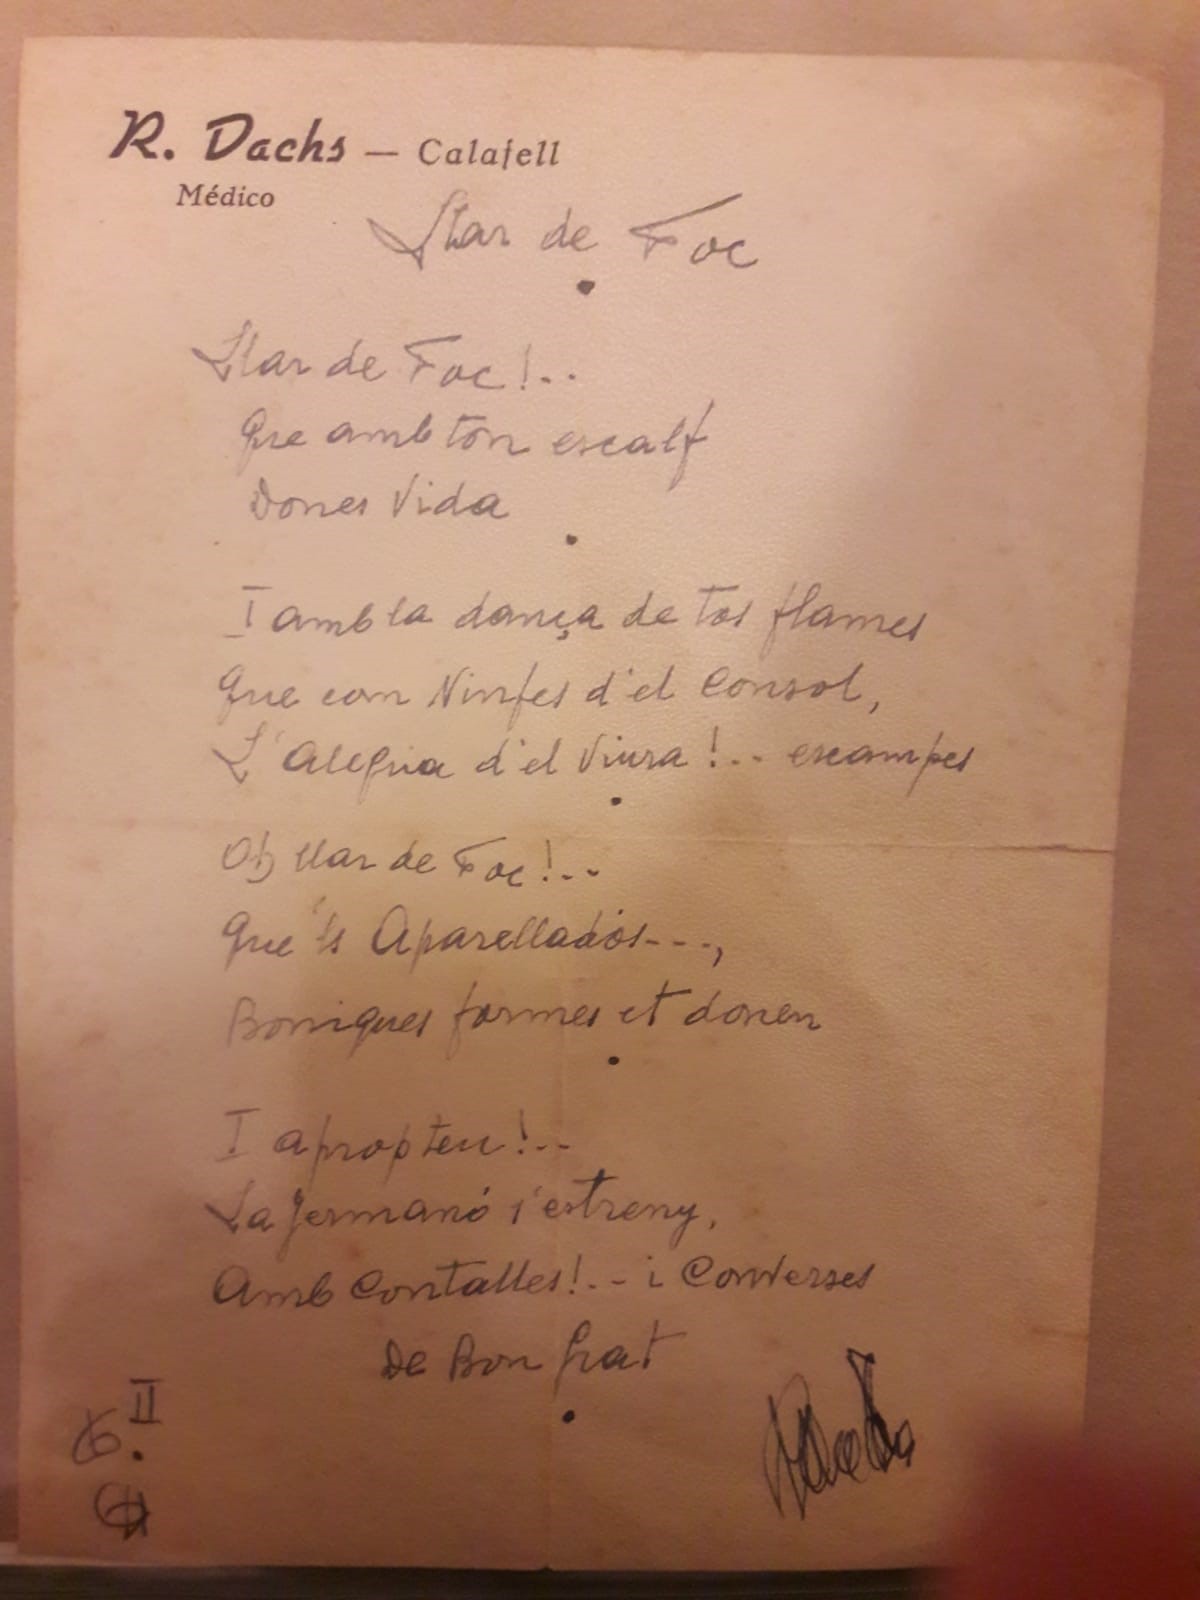 R. Dachs — Calafell
Médico
Llar de Foc
Llar de Foc!..
Que amb ton escalf
Dones Vida
I amb la dança de tos flames
Que com Ninfes d'el Consol,
L'Alegria d'el Viura!.. escampes
Oh llar de Foc!..
Que 'ls Aparelladós---,
Boniques formes et donen
I aprop teu!..
La Jermanó s'estreny,
Amb Contalles!.. i Converses
De Bon Grat
II